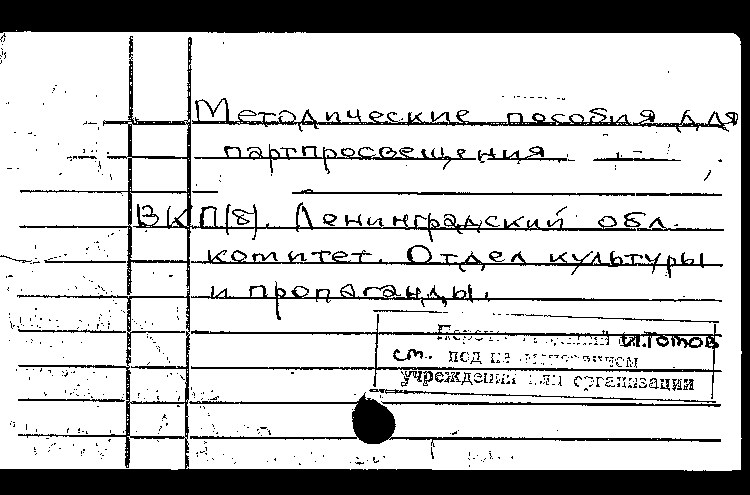 Методические пособия для
партпросвещения
ВКП(б). Ленинградский обл.
комитет. Отдел культуры
и пропаганды.
и.Томов
см. под
учреждения или организации